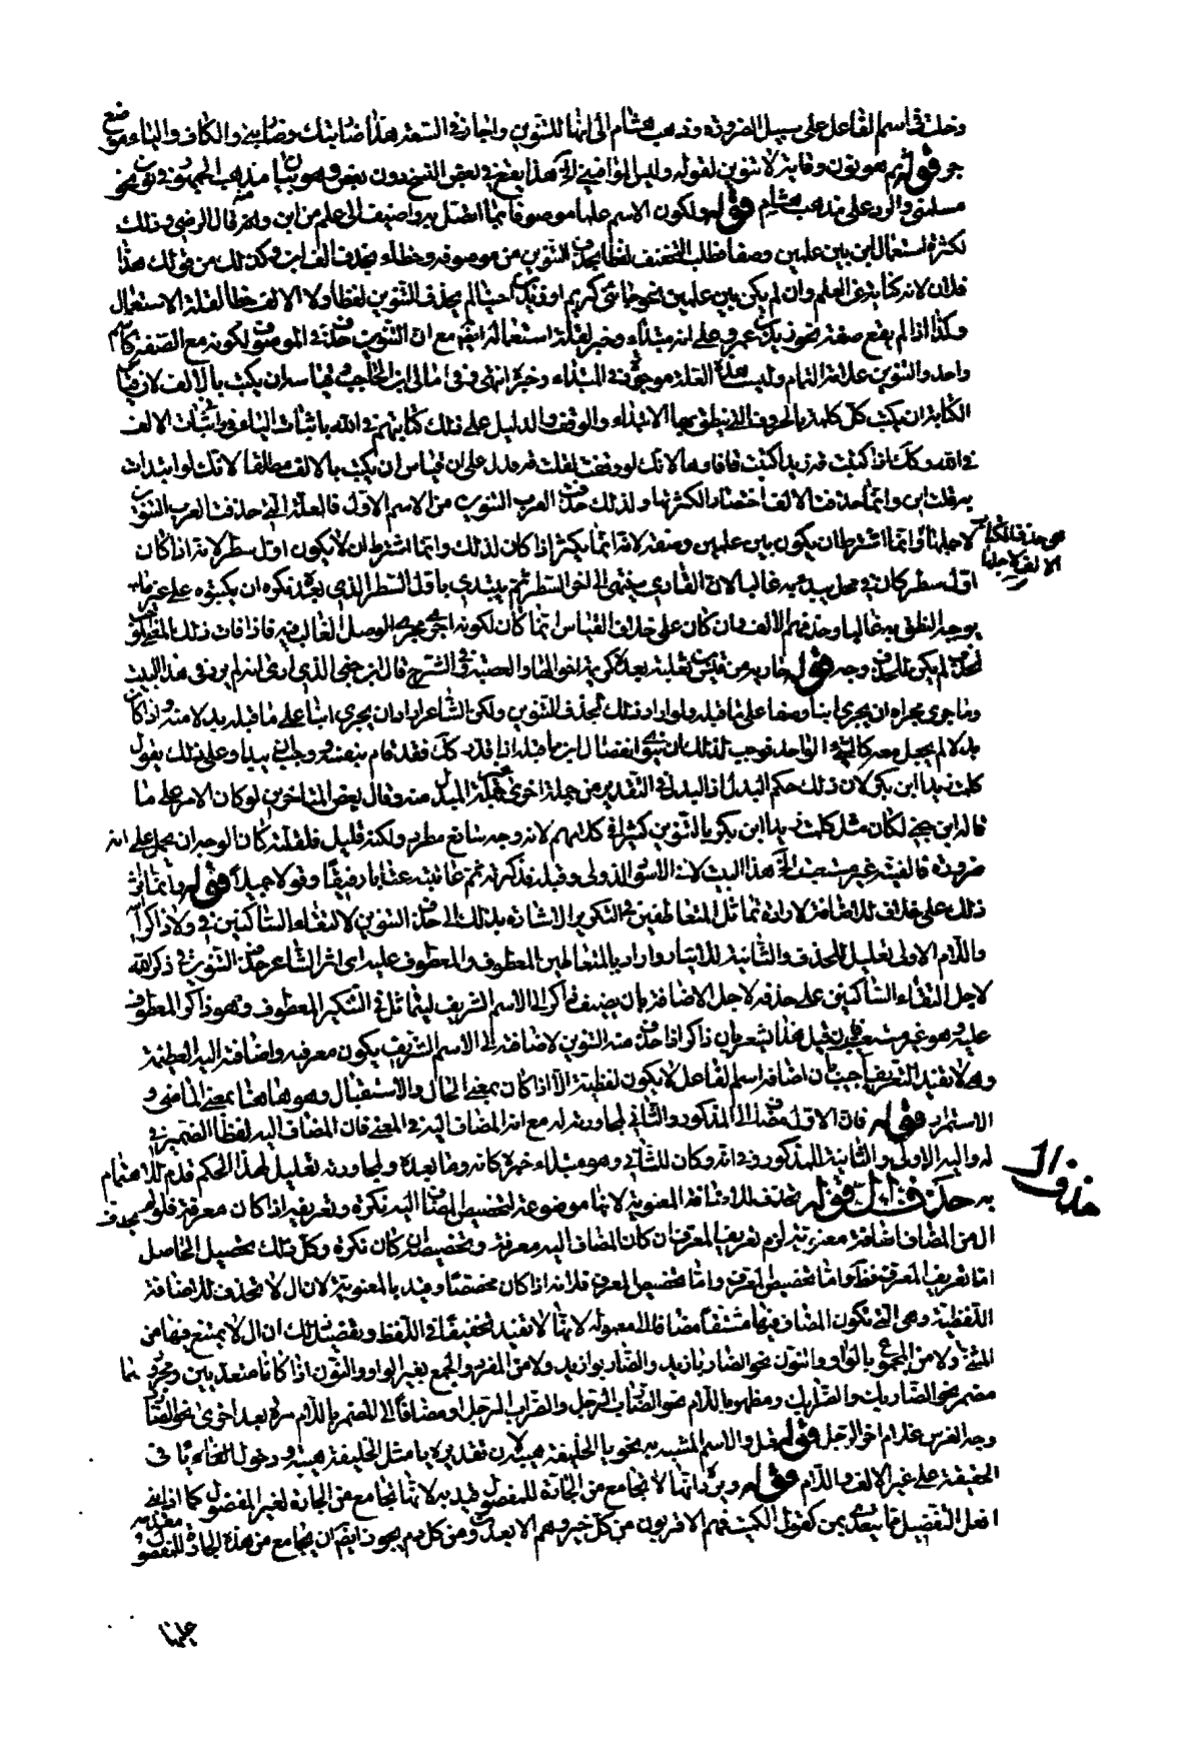 دخلت في اسم الفاعل على سبيل الضرورة وذهب هشام الى انها للتنوين واجاز في السعة هذا ضاربنك وضاربني والكاف والياء موضع
جر قوله هو نون وقاية لا تنوين لقوله وليس الموافيني الخ هكذا يقع في بعض النسخ دون بعض وهو بيان مذهب الجمهور في نون نحو
مسلمني والرد على مذهب هشام قوله ولكون الاسم علما موصوفا بما اتصل به واضيف الى علم من ابن وابنة قال الرضي وذلك
لكثرة استعمال ابن بين علمين وصفا فطلب التخفيف لفظا بحذف التنوين من موصوفه وخطا بحذف الف ابن وكذلك من قولك هذا
فلان لانه كناية عن العلم وان لم يكن بين علمين نحو جاءني كريم او زيد ابن اخينا لم يحذف التنوين لفظا ولا الالف خطا لقلة الاستعمال
وكذا اذا لم يقع صفة نحو زيد ابن عمرو على انه مبتدأ وخبر لقلة استعماله ايضا مع ان التنوين حذف في الموصوف لكونه مع الصفة كاسم
واحد والتنوين علامة التمام وليست هذه العلة موجودة في المبتدأ وخبره انتهى وفي امالي ابن الحاجب قياسه ان يكتب بالالف لان قياس
الكتابة ان يكتب كل كلمة بالحروف التي ينطق بها الابتداء والوقف والدليل على ذلك كتابتهم في الله باثبات الياء في واثبات الالف
في الله وكذلك اذا كتبت قه زيدا كتبت قافا وهاء لانك لو وقفت لقلت قه فدل على ان قياس ابن يكتب بالالف مطلقا لانك لو ابتدأت
به قلت ابن وانما حذفت الالف اختصارا لكثرتها ولذلك حذف العرب التنوين من الاسم الاول فالعلة التي حذفت العرب التنوين
لاجلها وانما اشترط ان يكون بين علمين وصفة لانه انما يكثر اذا كان كذلك وانما اشترط ان لا يكون اول سطر لانه اذا كان
هي حذف الكتاب
الالف لاجلها
اول سطر كان في محل يبتدأ به غالبا لان القاري ينتهي الى آخر السطر ثم يبتدي باول السطر الذي بعده فكره ان يكتبوه على غير ما
يوجبه النطق به غالبا وحذفهم الالف وان كان على خلاف القياس انما كان لكونه اجري مجرى الوصل الغالب فيه فاذا فات ذلك
لم يكن للحذف وجه قوله جارية من قيس بن ثعلبة بعده كريمة اخوالها والعصبة في الشرح قال ابن جني الذي ارى انه لم يرد في هذا البيت
وما جرى مجراه ان يجري ابنا وصفا على ما قبله ولو اراد ذلك لحذف التنوين ولكن الشاعر اراد ان يجري ابنا على ما قبله بدلا منه واذا كان
بدلا لم يجعل معه كالشيء الواحد فوجب لذلك ان ينوى انفصال ابن مما قبله اذا قدر كذلك فقد قام بنفسه ووجب ان يبتدأ وعلى ذلك يقول
كلمت زيدا ابن بكر لان ذلك حكم البدل اذ البدل في التقدير من جملة اخرى غير جملة المبدل منه وقال بعض المتاخرين لو كان الامر على ما
قاله ابن جني لكان مثل كلمت زيدا ابن بكر بالتنوين كثيرا في كلامهم لانه وجه شائع مطرد ولكنه قليل فلقلته كان الوجه ان يحمل على انه
ضرورة فالفيته غير مستعتب الخ هذا البيت لابي الاسود الدؤلي وقبله فذكرته ثم عاتبته عتابا رفيقا وقولا جميلا قوله وانما آثر
ذلك على حذفه للاضافة لارادة تماثل المتعاطفين في التنكير الاشارة بذلك الى حذف التنوين لالتقاء الساكنين في ولا ذاكر الله
واللام الاولى تعليل للحذف والثانية للايثار واراد بالمتعاطفين المعطوف والمعطوف عليه اي اثر الشاعر حذف التنوين في ذكر الله
لاجل التقاء الساكنين على حذفه لاجل الاضافة بان يضيف ذاكر الى الاسم الشريف ليتماثل في التنكير المعطوف وهو ذاكر المعطوف
عليه وهو غير مستعتب فان قيل هذا يشعر بان ذاكر اذا حذف منه التنوين لاضافته الى الاسم الشريف يكون معرفة واضافته اليه لفظية
وهي لا تفيد التعريف اجيب بان اضافة اسم الفاعل لا يكون لفظية الا اذا كان بمعنى الحال والاستقبال وهو هاهنا بمعنى الماضي و
الاستمرار قوله فان الاول مضاف الى المذكور والثاني لمجاورته له مع انه المضاف اليه في المعنى فان المضاف اليه لفظا الضمير في
له واليه الاولى والثانية للمذكور في انه وكان للثاني وهو مبتدأ خبره كانه وما بعده ولمجاورته تعليل لهذا الحكم قدم للاهتمام
به حذف ال قوله يحذف للاضافة المعنوية لانها موضوعة لتخصيص المضاف اليه نكرة وتعريفه اذا كان معرفة فلو لم يحذف
حذف ال
ال من المضاف اضافة معنوية لزم تعريف المعرف ان كان المضاف اليه معرفة وتخصيصه ان كان نكرة وكل ذلك تحصيل الحاصل
اما تعريف المعرف فظاهر واما تخصيص المعرف فلانه اذا كان مختصا وقيد بالمعنوية لان ال لا تحذف للاضافة
اللفظية وهي التي تكون المضاف فيها مشتقا مضافا الى معموله لانها لا تفيد الا تخفيفا في اللفظ وتفصيل ذلك ان ال لا يمتنع فيها من
المثنى ولا من المجموع بالواو والنون نحو الضاربا زيد والضاربو زيد ولا من المفرد والجمع بغير الواو والنون اذا كانا متعديين ومجردهما
مضمر نحو الضاربك والضرابك ومظهر باللام نحو الضارب الرجل والضراب الرجل او مضافا الى المضمر باللام مرة بعد اخرى نحو الضارب
وجه فرس غلام اخي الرجل قوله قيل والاسم المشبه به نحو يا الخليفة هيبة لان تقديره يا مثل الخليفة هيبة ودخول النداء يا في
الحقيقة على غير الالف واللام قوله ويرد انها لا تجامع من الجارة للمفضول قيد به لانها تجامع من الجارة لغير المفضول كما اذا بني
افعل التفضيل مما يتعدى بمن كقول الكميت فهم الاقربون من كل خير وهم الابعدون من كل ذم يجوز ايضا ان يجامع من هذه الجارة للمفضول مقدمة
عليها